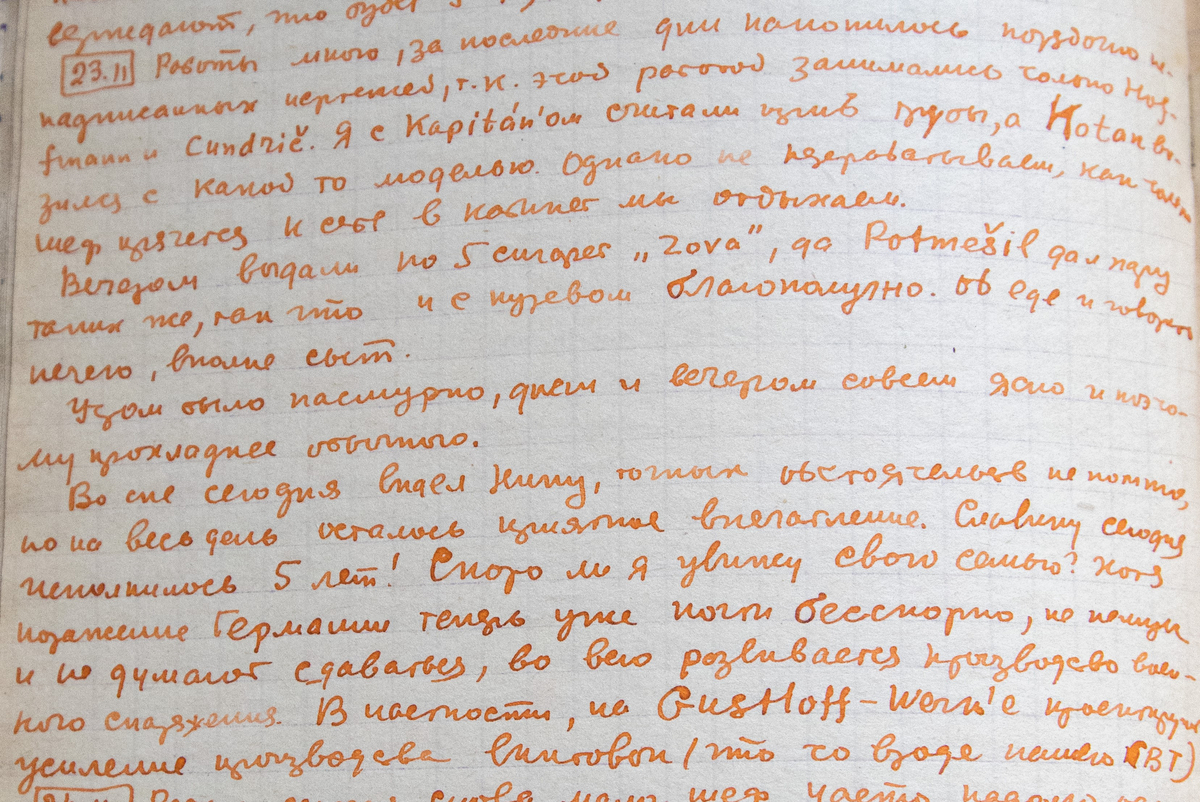 верждают, что будет
23.II Работы много, за последние дни накопилось порядочно не-
надписанных чертежей, т.к. этой работой занимались только Hof-
fmann и Cundrič. Я с Kapitán'ом считали цилв трубы, а Kotan во-
зился с какой то моделью. Однако не перерабатываем, как только
шеф прячется к себе в кабинет мы отдыхаем.
Вечером выдали по 5 сигарет „Zova", да Potměšil дал пару
таких же, так что и с куревом благополучно. Об еде и говорить
нечего, вполне сыт.
Утром было пасмурно, днем и вечером совсем ясно и поэто-
му прохладнее обычного.
Во сне сегодня видел Нину, точных обстоятельств не помню,
но на весь день осталось приятное впечатление. Славику сегодня
исполнилось 5 лет! Скоро ли я увижу свою семью? Хотя
поражение Германии теперь уже почти бесспорно, но немцы
и не думают сдаваться, во всю развивается производство воен-
ного снаряжения. В частности, на Gustloff-Werk'е проектируют
усиление производства винтовок (что то вроде нашей СВТ)
снова мало, шеф часто